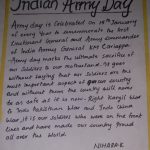 Indian Army Day
Army day is celebrated on 15th January
of every year to commemorate the first
Lieutenant General and Army commander
of India Army General KM Cariappa.
Army day marks the ultimate sacrifice of
our Soldiers to our motherland. It goes
without saying that our Soldiers are the
most important aspect of our country
and without them the country will never
be as safe as it is now. Right Kargil War
to Indo Pakistan War and Indo China
War, it is our Soldiers who were on the front
lines and have made our country proud
all over the world.